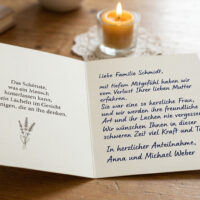 Das Schönste,
was ein Mensch
hinterlassen kann,
ein Lächeln im Gesicht
die an ihn denken.
Liebe Familie Schmidt,
mit tiefem Mitgefühl haben wir
vom Verlust Ihrer lieben Mutter
erfahren.
Sie war eine so herzliche Frau,
und wir werden ihre freundliche
Art und ihr Lachen nie vergessen.
Wir wünschen Ihnen in dieser
schweren Zeit viel Kraft und
In herzlicher Anteilnahme,
Anna und Michael Weber